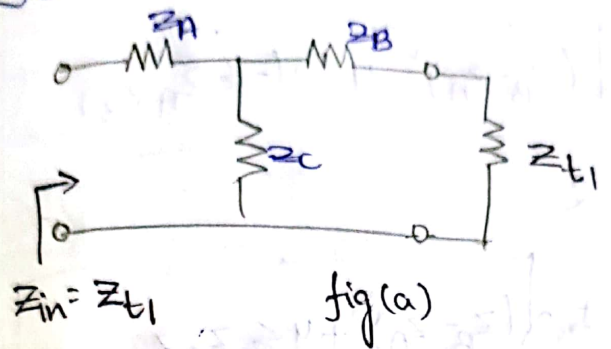 ZA
ZB
ZC
Zt1
Zin = Zt1
fig(a)